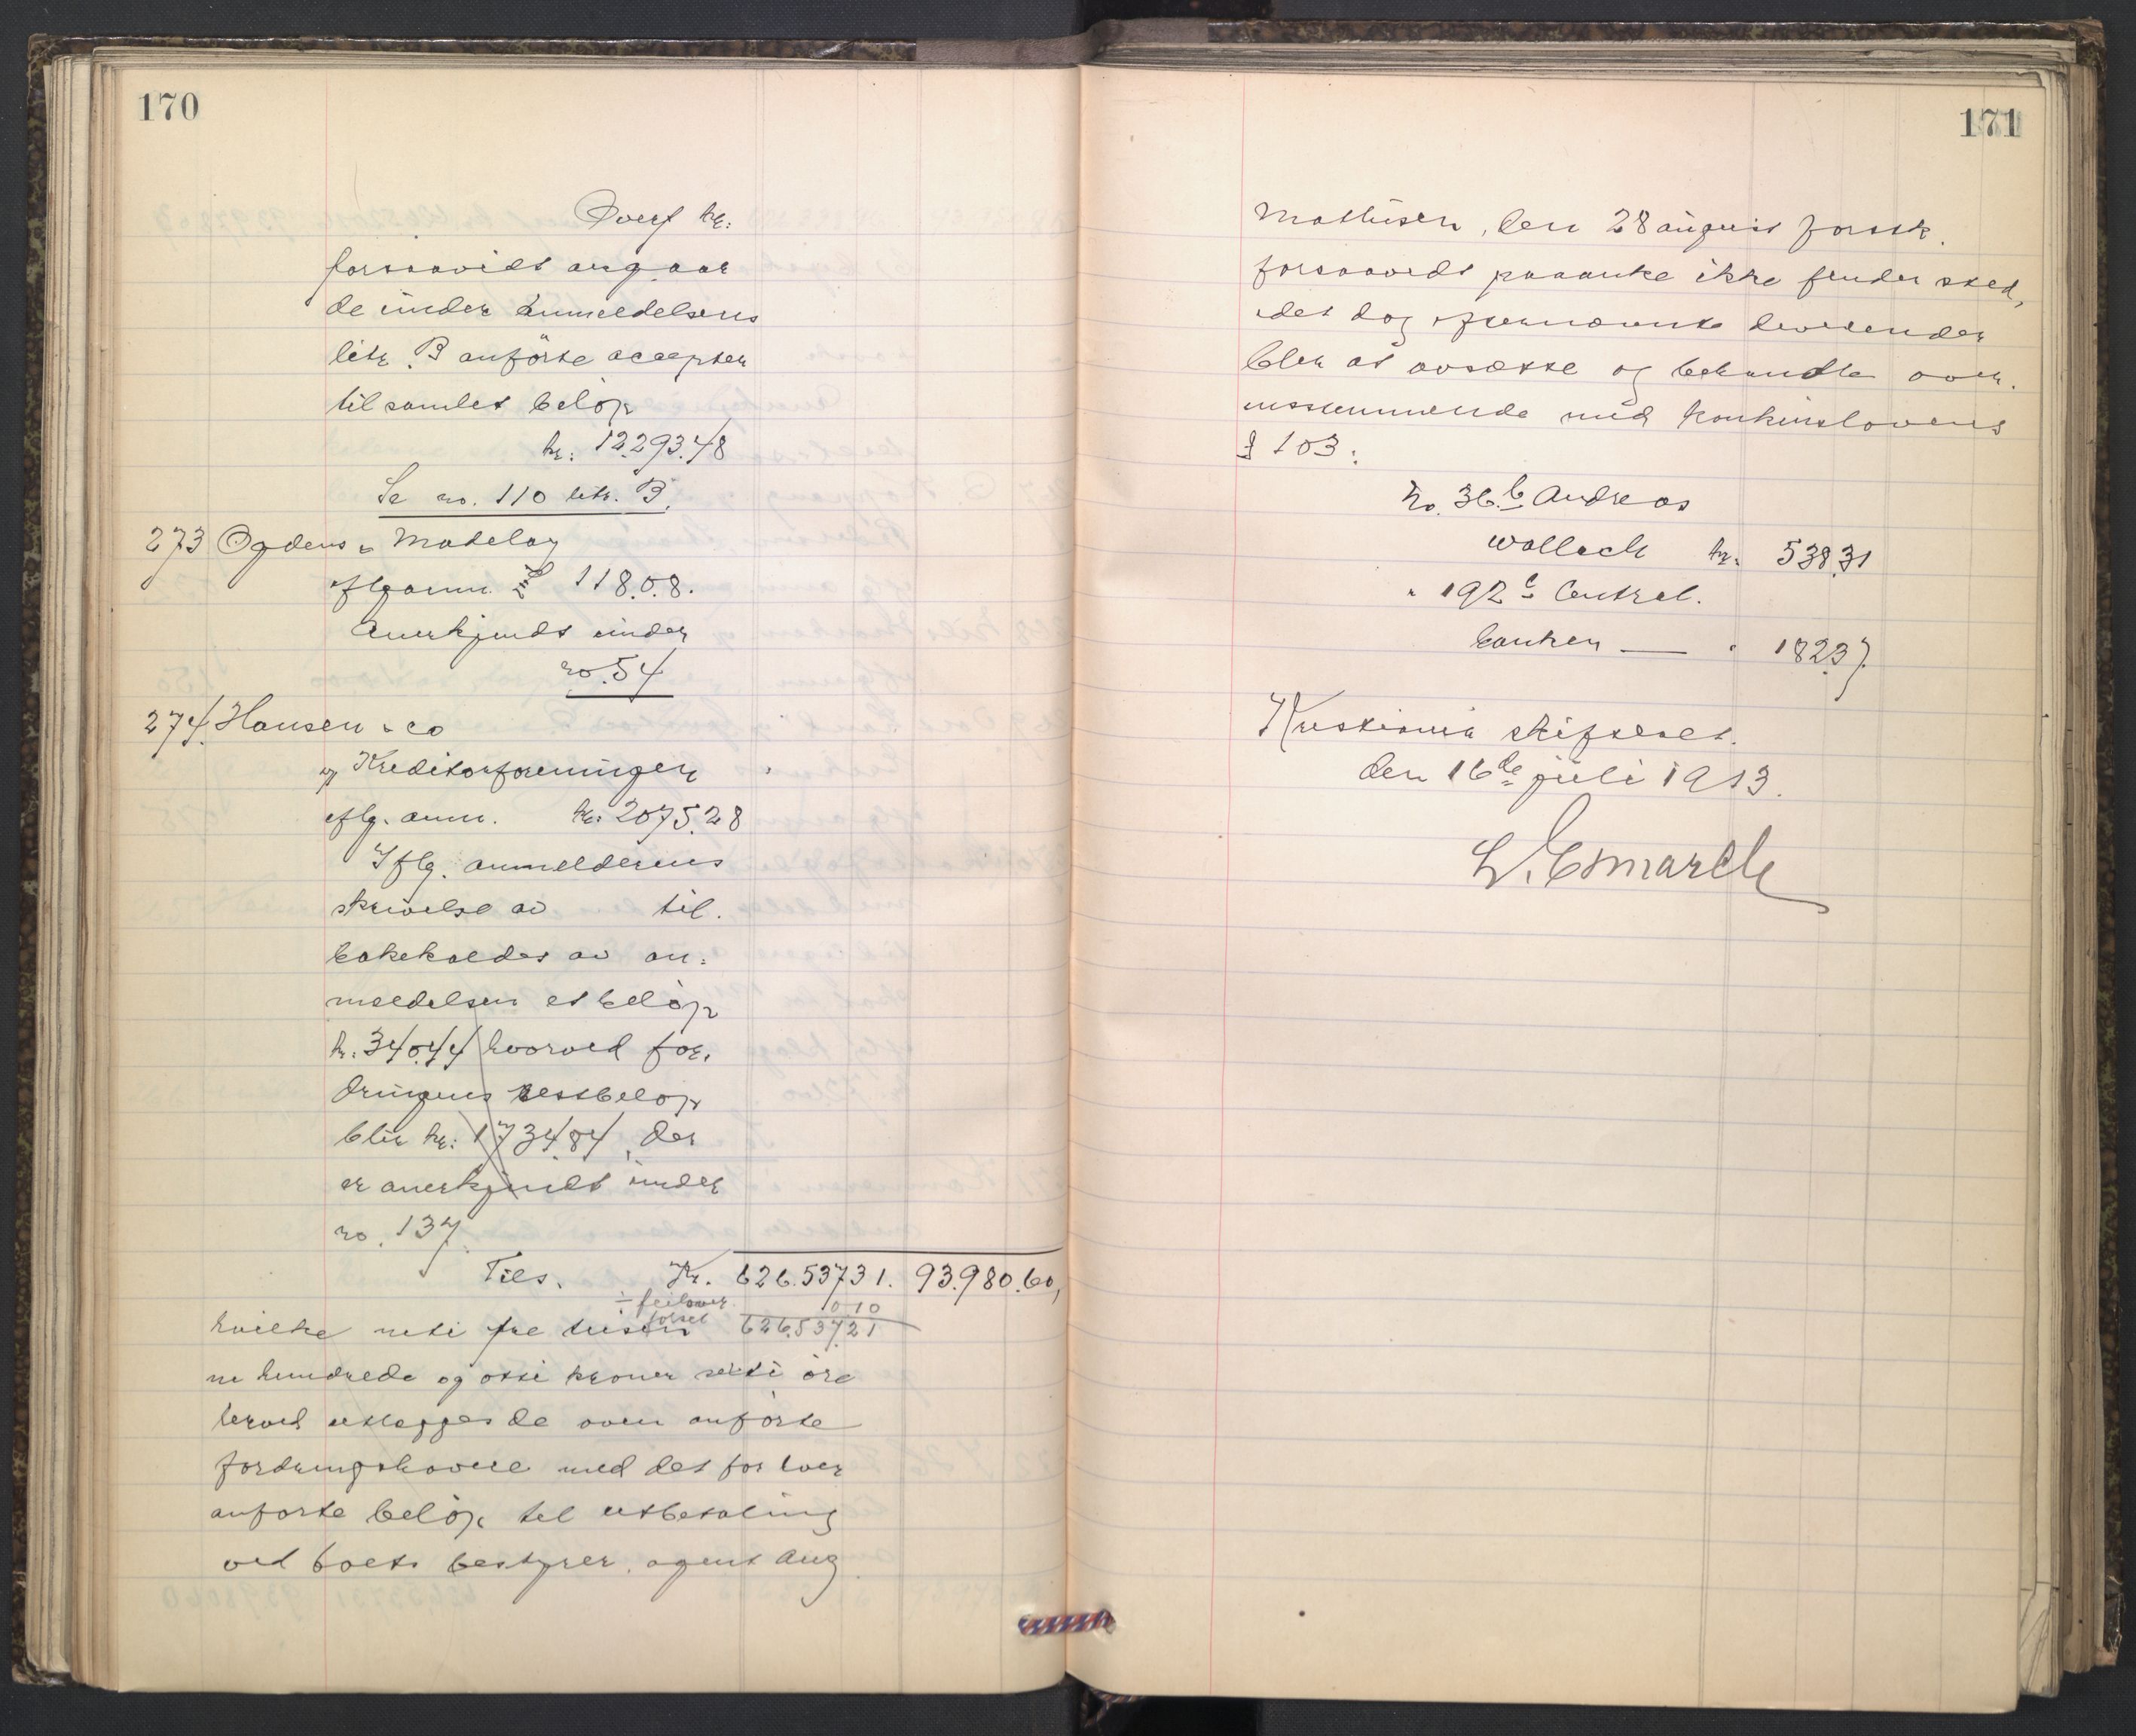 170
Overf kr:
forsaavidt angaar
de under anmeldelsens
litr. B anførte accepter
til samlet beløp
kr: 12.293.48
Se no. 110 litr. B.
273 Ogdens & Madeley
iflg anm. £ 118.0.8.
Anerkjendt under
no. 54
274. Hansen & Co
v/ Kreditorforeningen
iflg. anm. kr: 2075.28
Iflg. anmelderens
skrivelse av til-
bakeholdes av an-
meldelsen et beløp
kr: 340.44 hvorved for-
dringens restbeløp
blir kr: 1734.84, der
er anerkjendt under
no. 137.
Tils. Kr. 626.537.31. 93.980.60,
÷ feilover
0 10
førsel
hvilke niti tre tusen 626.537.21
ni hundrede og otti kroner seksti øre
herved utlægges de oven anførte
fordringshavere med det for hver
anførte beløp til utbetaling
ved boets bestyrer, agent Aug
171
Mathisen, den 28 august førstk.
forsaavidt paaanke ikke finder sted,
idet dog efternævnte dividender
blir at avsætte og behandle over-
ensstemmende med konkurslovens
§ 103:
No. 36.b Andreas
Wallach kr: 538.31
" 192 c Central-
banken — " 182.37
Kristiania skifteret.
den 16de juli 1913.
L. Esmarch